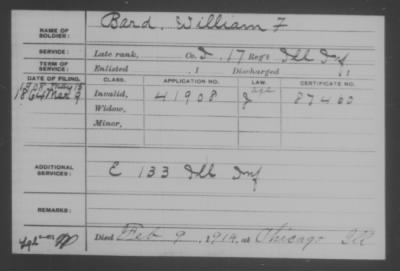 NAME OF SOLDIER: Bard, William F
SERVICE: Late rank, Co. D, 17 Reg't Ill Inf
TERM OF SERVICE: Enlisted , 1 Discharged , 1
DATE OF FILING. CLASS. APPLICATION NO. LAW. CERTIFICATE NO.
1864 Mar 9 Invalid, 41908 87460
Widow,
Minor,
ADDITIONAL SERVICES: E 133 Ill Inf
REMARKS:
Died Feb 9, 1914, at Chicago Ill